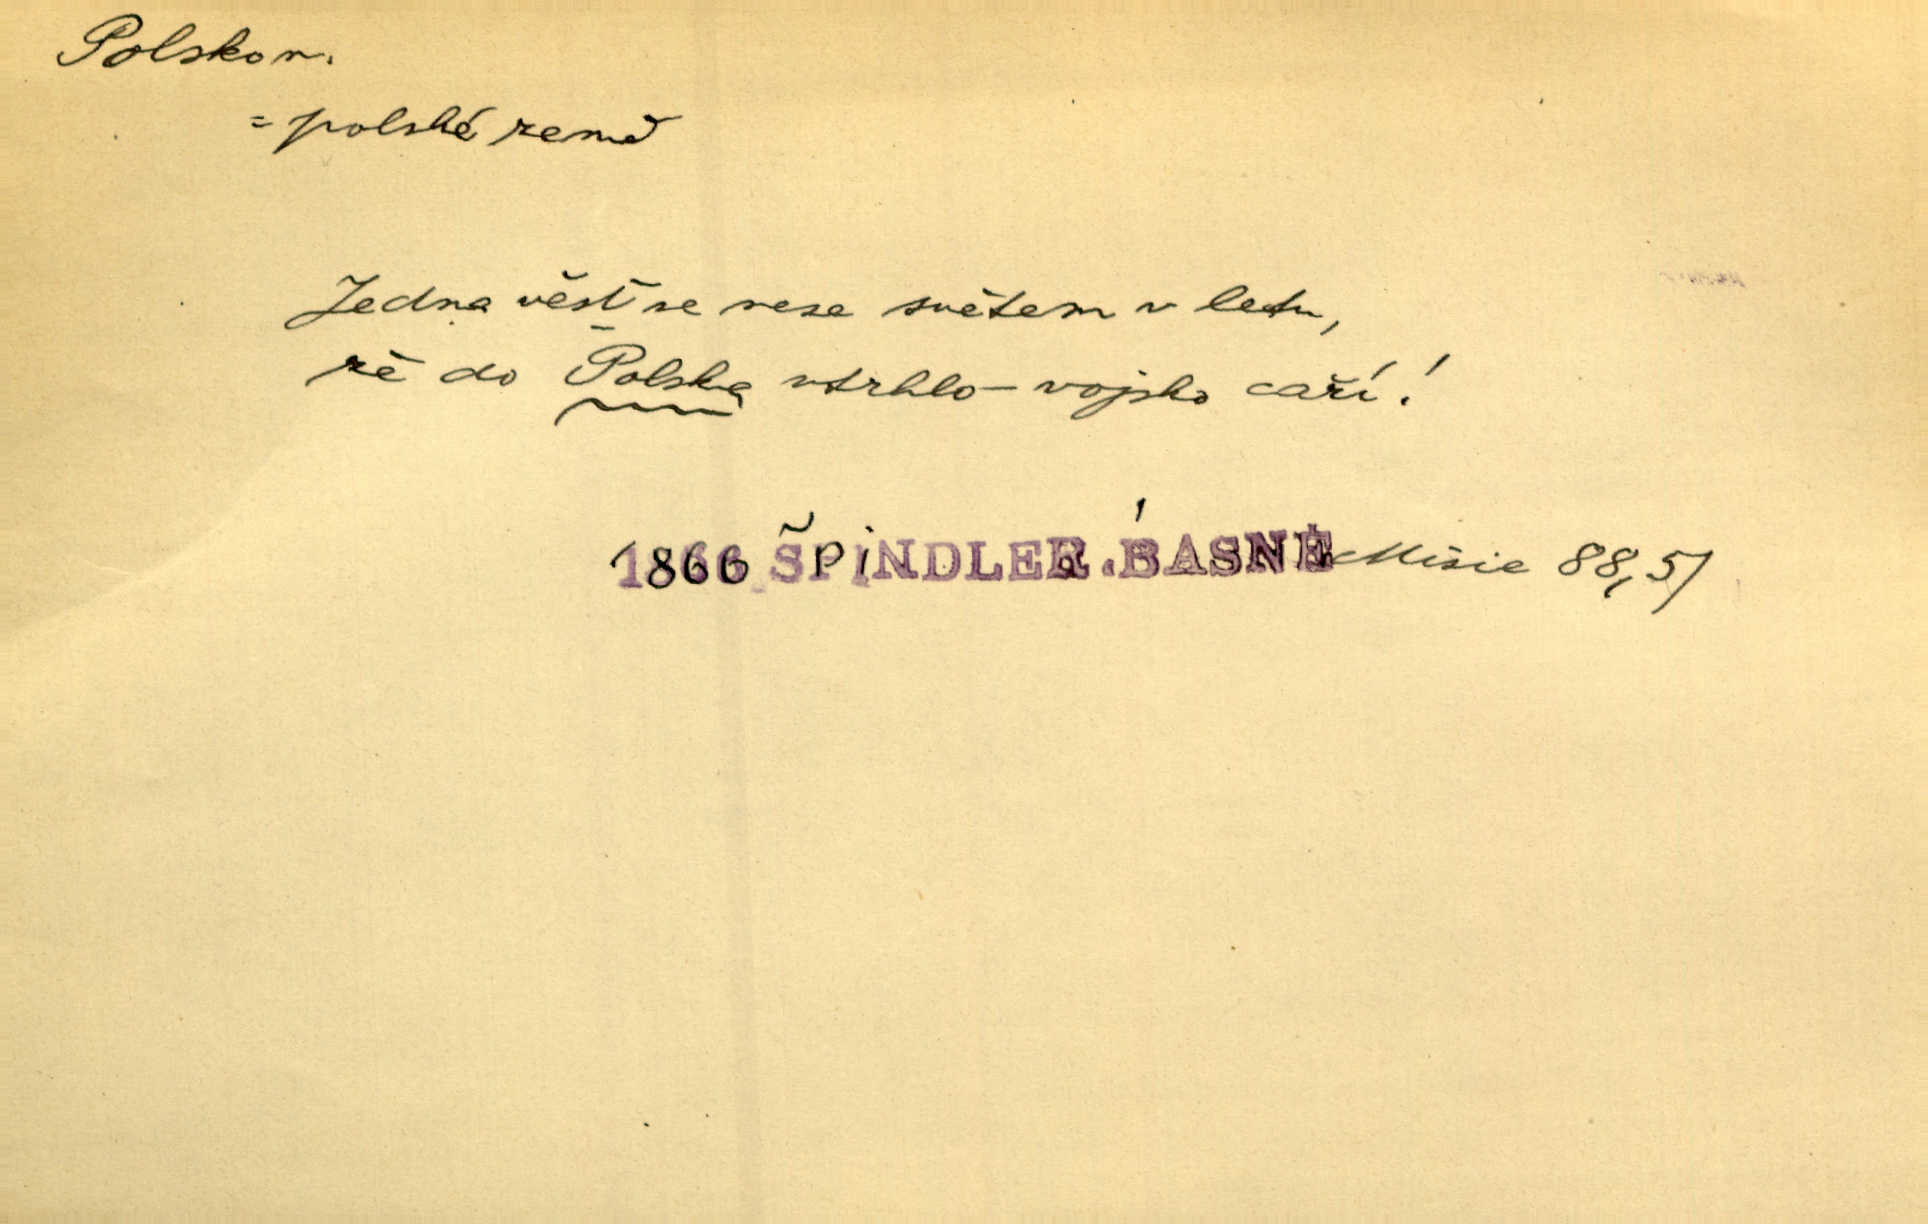 Polsko n.
= polské země
Jedna věsť se nese světem v letu,
že do Polska vtrhlo – vojsko caří!
1866 ŠPiNDLER. BÁSNĚ Misie 88, 5/